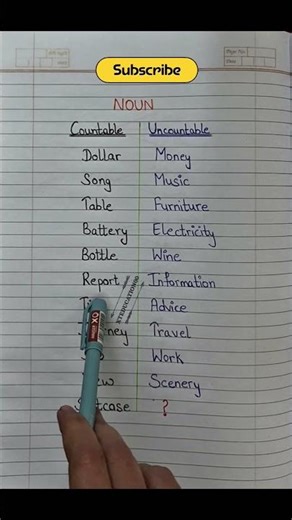 Subscribe
NOUN
Countable Uncountable
Dollar Money
Song Music
Table Furniture
Battery Electricity
Bottle Wine
Report Information
Advice
Travel
Work
Scenery
?